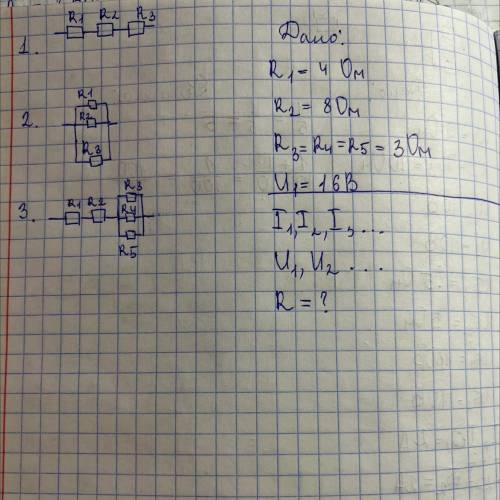 1. R1 R2 R3
2. R1
R2
R3
3. R1 R2 R3
R4
R5
Дано:
R1 = 4 Ом
R2 = 8 Ом
R3 = R4 = R5 = 3 Ом
U1 = 16 В
I1, I2, I3 ...
U1, U2 ...
R = ?